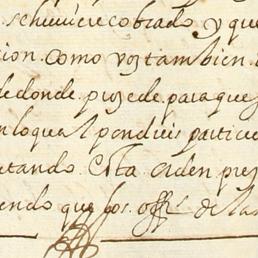 se huuiere cobrado y que
cion. como vos tambien.
de donde. proçede. para que
en lo qual pondreis particu
tando. Esta orden pre
endo que los. offs. de la